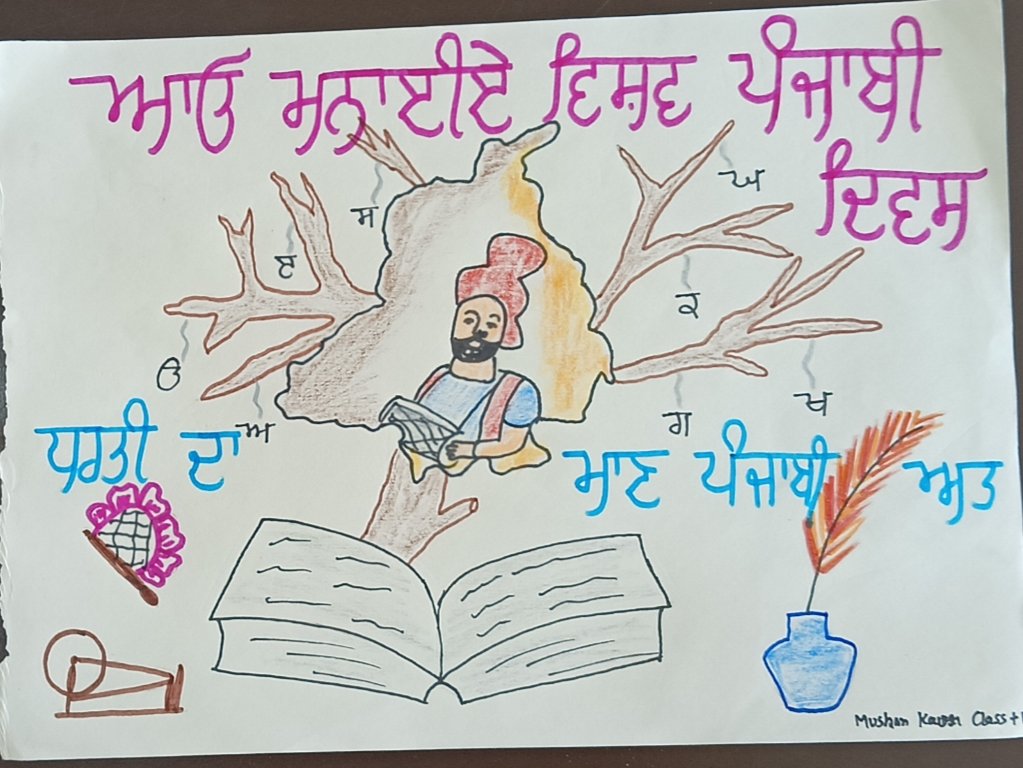 ਆਓ ਮਨਾਈਏ ਵਿਸ਼ਵ ਪੰਜਾਬੀ
ਦਿਵਸ
ਘ
ਸ
ੲ
ਕ
ੳ
ਖ
ਗ
ਅ
ਧਰਤੀ ਦਾ ਮਾਣ ਪੰਜਾਬੀ ਅਸਤ
Muskan Kaur Class +1